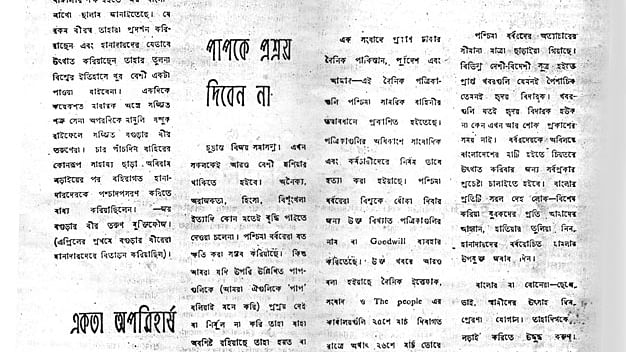 রাখো ছালাম জানাইতেছে। যে
রকম বীরত্ব তাহারা প্রদর্শন করি-
য়াছেন এবং হানাদারদের যেভাবে
উৎখাত করিয়াছেন তাহার তুলনা
বিশ্বের ইতিহাসে খুব বেশী একটা
পাওয়া যাইবেনা। একদিকে
কয়েকশত মারাত্মক অস্ত্রে সজ্জিত
শত্রু সেনা অপরদিকে মামুলি বন্দুক
রাইফেলে সজ্জিত বগুড়ার বীর
তরুণেরা। চার পাঁচদিন বাহিরের
কোনরূপ সাহায্য ছাড়া অবিরাম
লড়াইয়ের পর বহিরাগত হানা-
দারদেরকে পশ্চাদপসরণ করিতে
বাধ্য করিয়াছিলেন। —জয়
বগুড়ার বীর তরুণ মুক্তিফৌজ।
(এপ্রিলের প্রথমে বগুড়ার বীরেরা
হানাদারদেরে বিতাড়ন করিয়াছিল)।
একতা অপরিহার্য
পাপকে প্রশ্রয়
দিবেন না
চূড়ান্ত বিজয় সমাসন্ন। এখন
সকলকেই আরও বেশী হুশিয়ার
থাকিতে হইবে। অনৈক্য,
অরাজকতা, হিংসা, বিশৃংখলা
ইত্যাদি কোন মতেই বৃদ্ধি পাইতে
দেওয়া চলেনা। পশ্চিমা বর্বরেরা যত
ক্ষতি করা সম্ভব করিয়াছে। কিন্তু
আমরা যদি উপরি উল্লিখিত পাপ-
গুলিকে (আমরা ঐগুলিকে 'পাপ'
বলিয়াই মনে করি) প্রশ্রয় দেই
বা নির্মূল না করি তাহা যাহা
অবশিষ্ট রহিয়াছে তাহা হয়ত বা
এক সংবাদে প্রকাশ ঢাকার
দৈনিক পাকিস্তান, পূর্বদেশ এবং
আজাদ—এই দৈনিক পত্রিকা-
গুলি পশ্চিমা সামরিক বাহিনীর
তত্ত্বাবধানে প্রকাশিত হইতেছে।
পত্রিকাগুলির অধিকাংশ সাংবাদিক
এবং কর্মচারীদেরে নির্মম ভাবে
হত্যা করা হইয়াছে। পশ্চিমা
বর্বরেরা বিশ্বকে ধোঁকা দিবার
জন্য উক্ত বিখ্যাত পত্রিকাগুলির
নাম বা Goodwill ব্যবহার
করিতেছে। উক্ত খবরে আরও
বলা হইয়াছে দৈনিক ইত্তেফাক,
সংবাদ ও The people এর
কার্যালয়গুলি ২৫শে মার্চ দিবাগত
রাত্রে অর্থাৎ ২৬শে মার্চ ভোরে
পশ্চিমা বর্বরদের অত্যাচারের
সীমানা মাত্রা ছাড়াইয়া গিয়াছে।
বিভিন্ন দেশী-বিদেশী সূত্র হইতে
প্রাপ্ত খবরগুলি যেমন পৈশাচিক
তেমনই হৃদয় বিদারক। খবর-
গুলি যতই হৃদয় বিদারক হউক
না কেন এখন আর শোক প্রকাশের
সময় নাই। বর্বরদেরকে অবিলম্বে
বাংলাদেশের মাটি হইতে চিরতরে
উৎখাত করিবার জন্য সর্বপ্রকার
প্রচেষ্টা চালাইতে হইবে। বাংলার
প্রতিটি সরল দেহ লোক—বিশেষ
করিয়া যুবকদের প্রতি আমাদের
আহ্বান, হাতিয়ার তুলিয়া নিন,
হানাদারদের বর্বরোচিত হামলার
উপযুক্ত জবাব দিন।
বাংলার মা বোনেরা—ছেলে,
ভাই, স্বামীদের উৎসাহ দিন,
প্রেরণা যোগান। তাহাদিগকে,
লড়াই করিতে উদ্বুদ্ধ করুন।